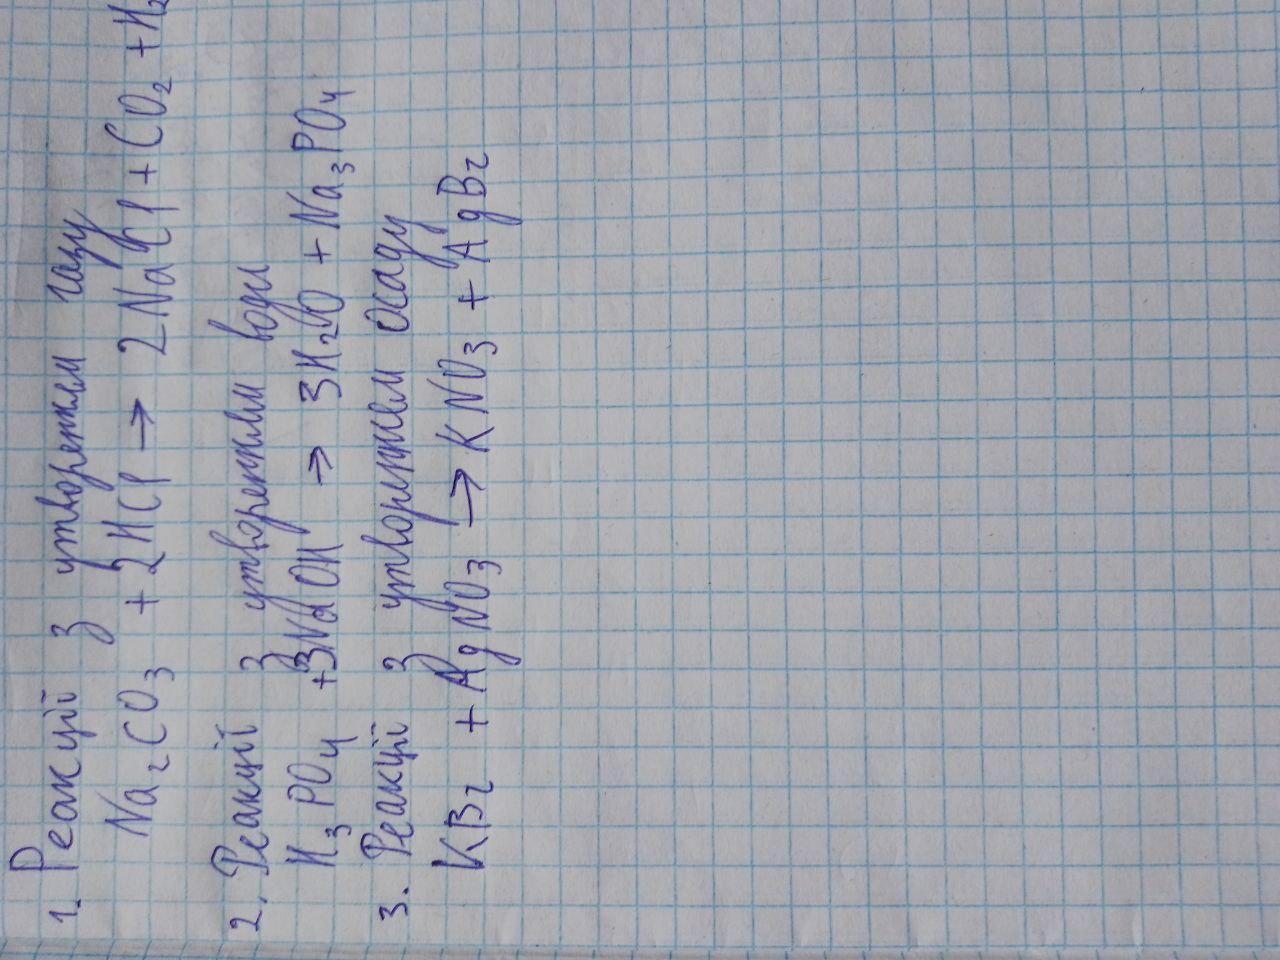 1. Реакції з утворенням газу
Na₂CO₃ + 2HCl → 2NaCl + CO₂ + H₂
2. Реакції з утворенням води
H₃PO₄ + 3NaOH → 3H₂O + Na₃PO₄
3. Реакції з утворенням осаду
KBr + AgNO₃ → KNO₃ + AgBr